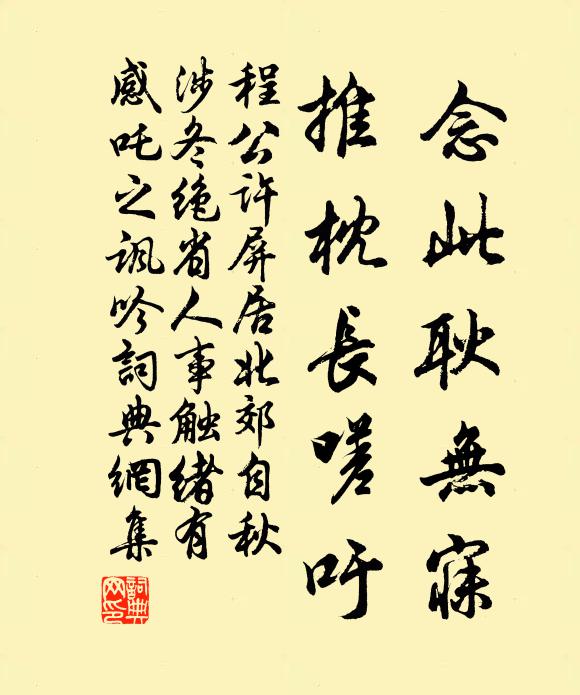 念此耿無寐
推枕長嗟吁
程公许屏居北郊自秋
涉冬绝省人事触绪有
感吒之讽吟詞典網集
詞典网印